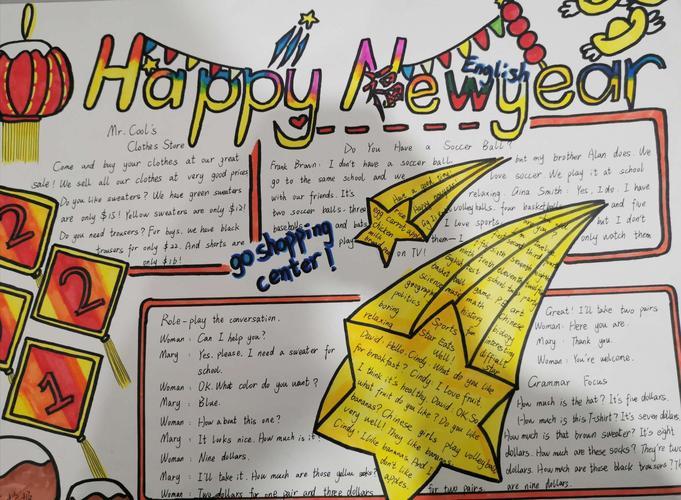 Happy Newyear
English
Mr. Cool's
Clothes Store
Come and buy your clothes at our great
sale! We sell all our clothes at very good prices
Do you like sweaters? We have green sweaters
are only $15! Yellow sweaters are only $12!
Do you need trousers? For boys, we have black
trousers for only $22. And shorts are
only $16!
Do You Have a Soccer Ball?
Frank Brown: I don't have a soccer ball,
go to the same school and we
with our friends. It's
two soccer balls, three
baseballs and bats
play
but my brother Alan does. We
love soccer. We play it at school
relaxing. Gina Smith: Yes, I do. I have
volleyballs, four basketballs and five
I love sports, but I don't
them— I only watch them
on TV!
Have a good time!
go shopping
center!
2
2
1
Role-play the conversation.
Woman: Can I help you?
Mary: Yes, please. I need a sweater for
school.
Woman: OK. What color do you want?
Mary: Blue.
Woman: How about this one?
Mary: It looks nice. How much is it?
Woman: Nine dollars.
Mary: I'll take it. How much are those yellow socks?
Woman: Two dollars for one pair and three dollars
for two pairs.
Great! I'll take two pairs
Woman: Here you are.
Mary: Thank you.
Woman: You're welcome.
Grammar Focus
How much is the hat? It's five dollars.
How much is this T-shirt? It's seven dollars.
How much is that brown sweater? It's eight
dollars. How much are these socks? They're two
dollars. How much are those black trousers? Th
are nine dollars.
geography
politics
boring
relaxing
science music math
history
Chinese
biology
interesting
difficult
star
Sports
Star Eats
Well!
David: Hello, Cindy. What do you like
for breakfast? Cindy: I love fruit
I think it's healthy. David: OK. So
what fruit do you like? Do you like
bananas? Chinese girls play volleyball
very well! They like bananas
Cindy: I like bananas. And I
don't like
apples